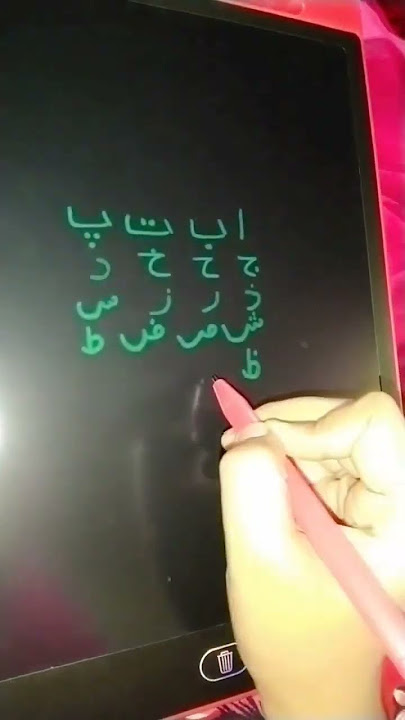 ا ب ت پ
ج ح خ د
ذ ر ز س
ش ص ض ط
ظ